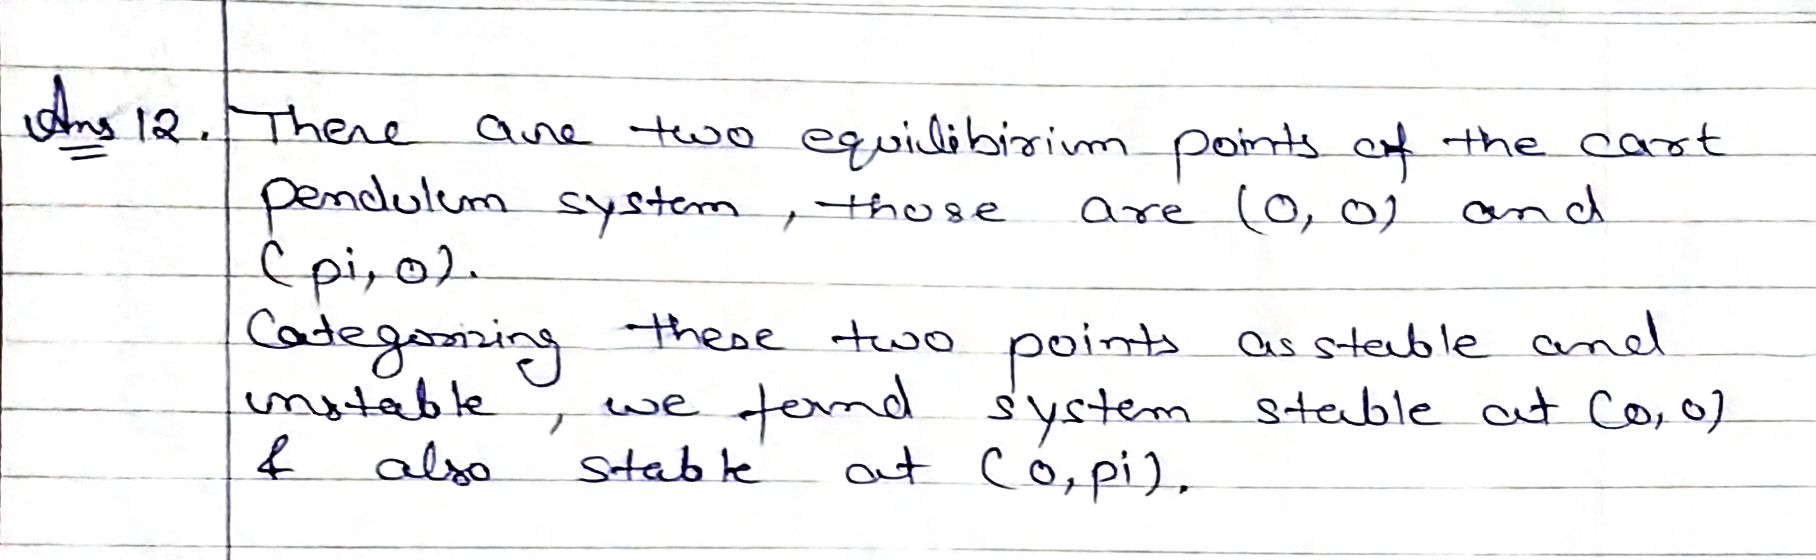 Ans 12. There are two equilibirium points of the cart
pendulum system, those are (0, 0) and
(pi, 0).
Categorizing these two points as stable and
unstable, we found system stable at (0, 0)
& also stable at (0, pi).